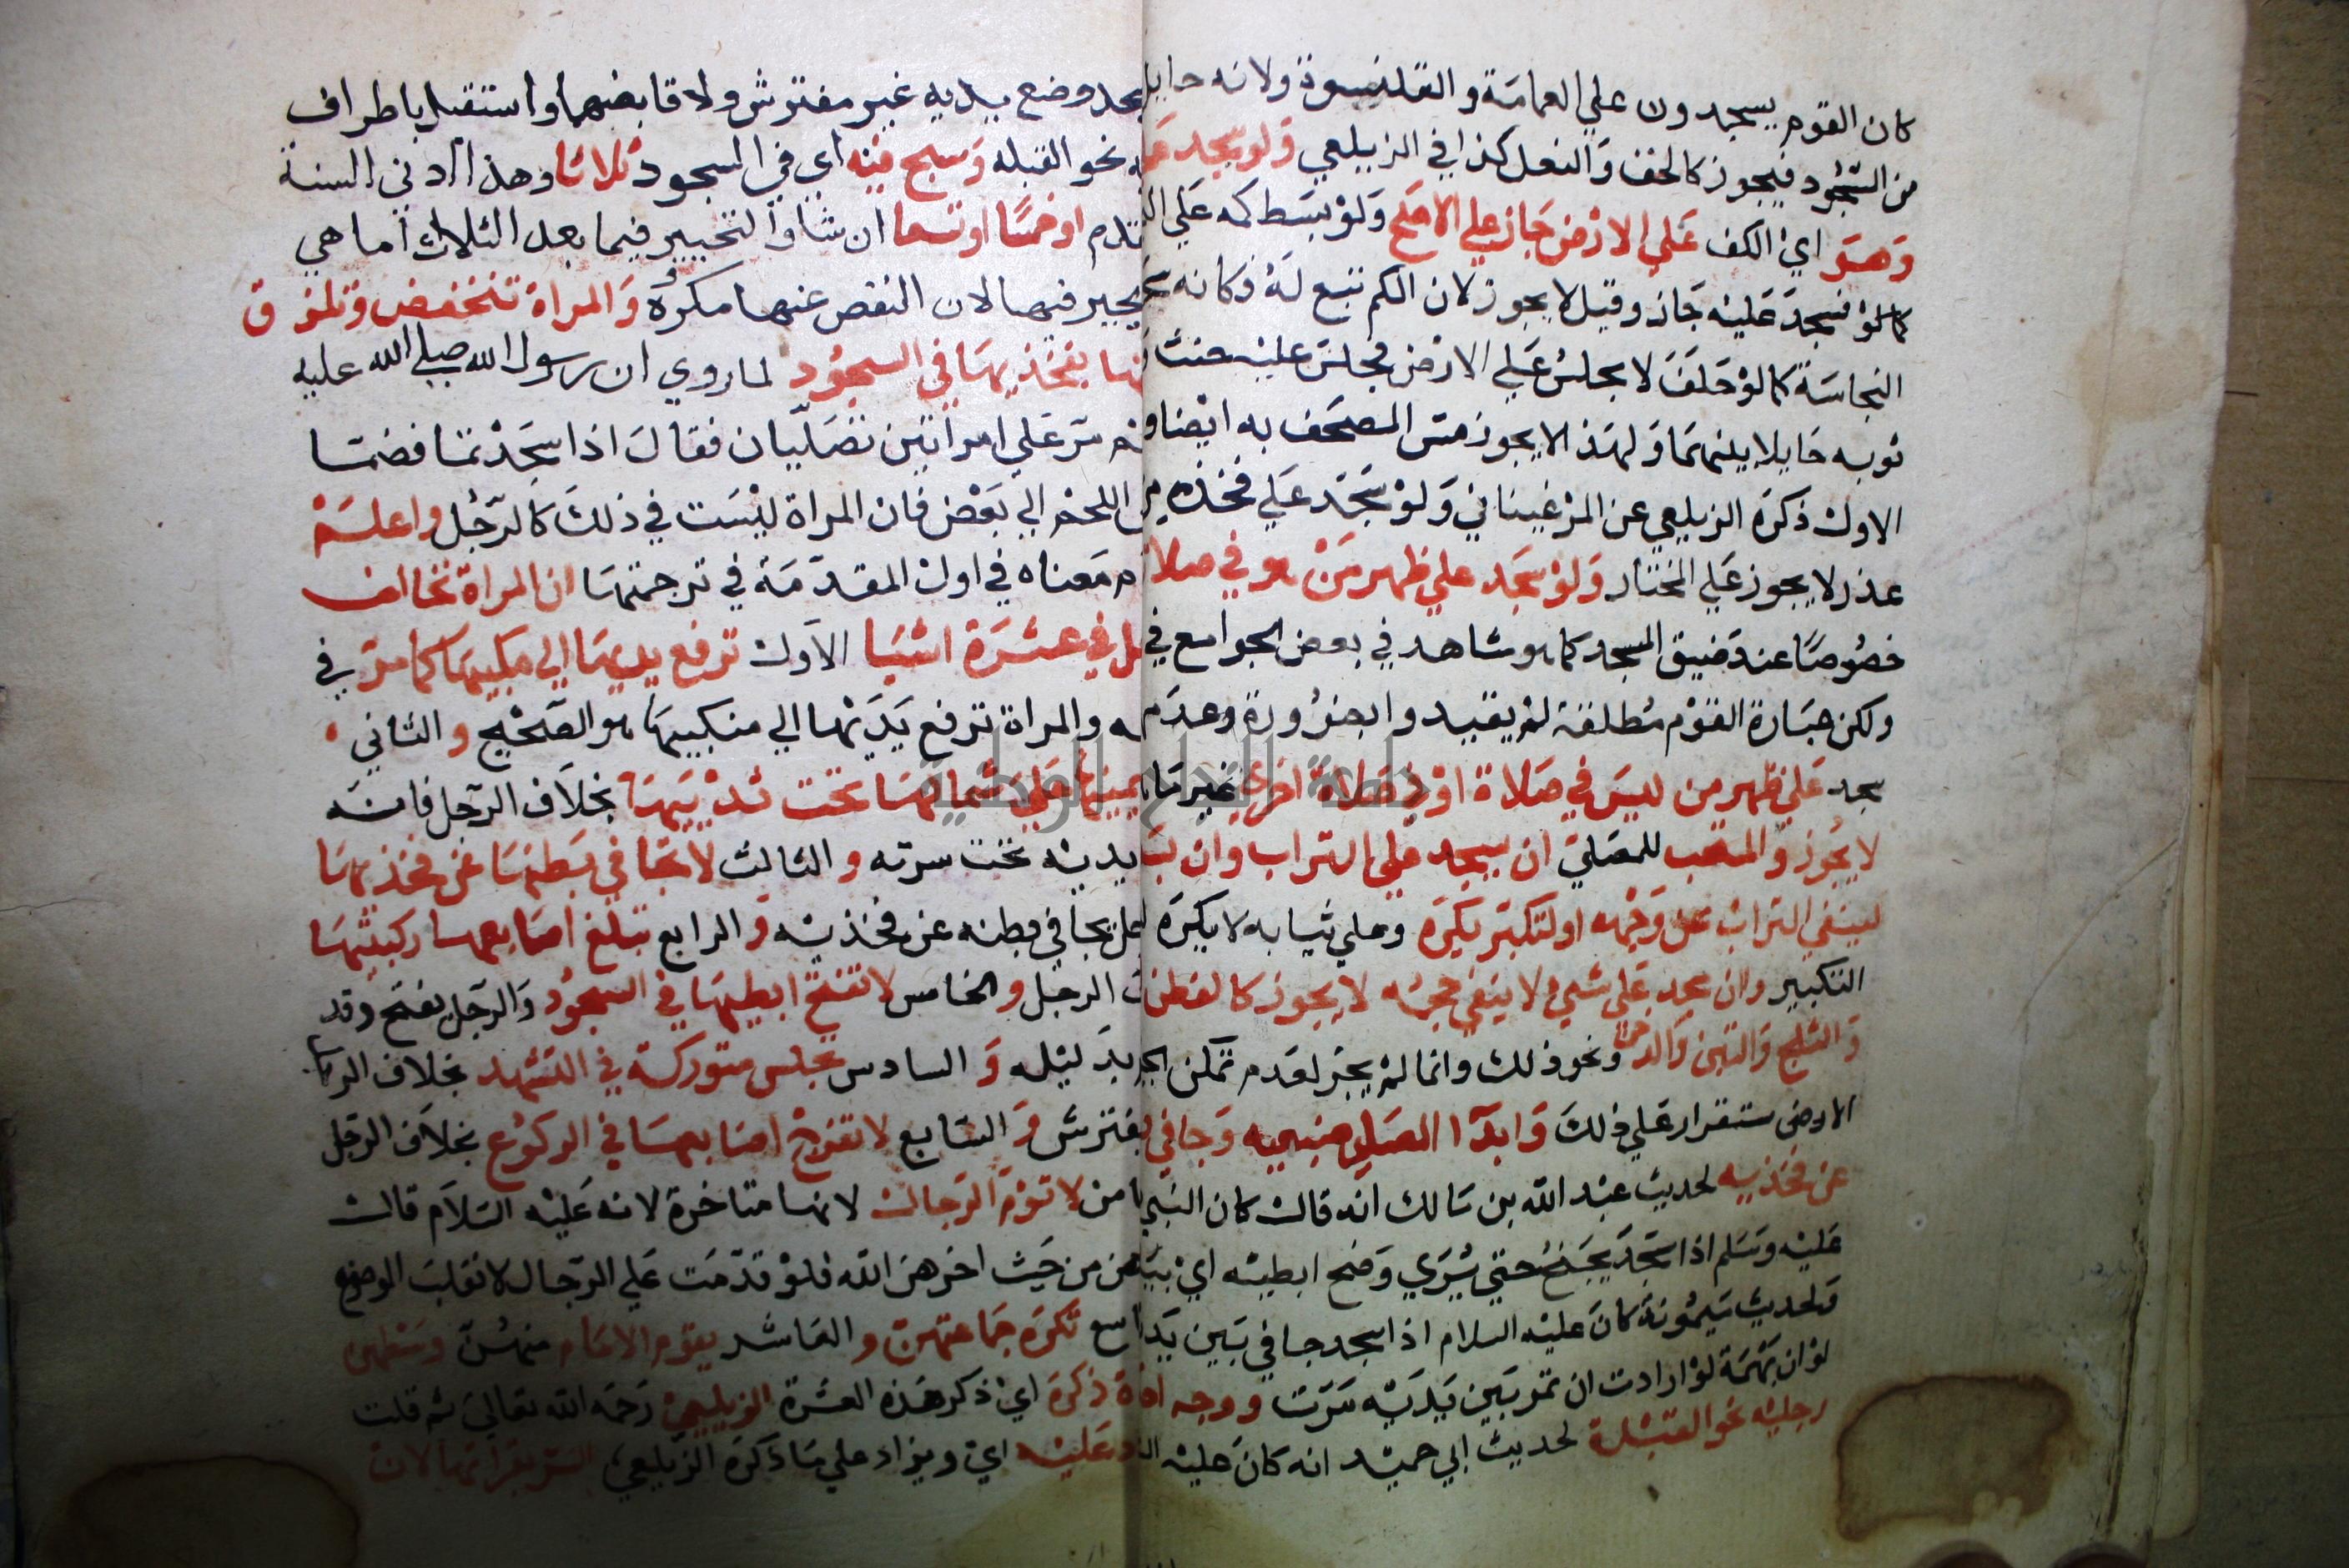 كان القوم يسجدون علي العمامة والقلنسوة ولانه حايل
من السجود فيجوز كالخف والنعل كذا في الزيلعي ولو سجد
وهو اي الكف علي الارض جاز علي الاصح ولو بسط كمه علي
كما لو فسجد عليه جاز وقيل لا يجوز لان الكم تبع له فكانه
النجاسة كما لو حلف لا يجلس علي الارض فجلس عليه حنث
ثوبه حايلا بينهما ولهذا لا يجوز مس المصحف به ايضا و
الاول ذكره الزيلعي عن المرغيناني ولو سجد علي فخذه من
عذر لا يجوز علي المختار ولو سجد علي ظهر من هو في صلا
خصوصا عند ضيق المسجد كما هو مشاهد في بعض الجوامع في
ولكن عبارة القوم مطلقة لم يقيدوا بضرورة وعدم
سجد علي ظهر من ليس في صلاة او في صلاة اخري غير ما
لا يجوز والمستحب للمصلي ان يسجد علي التراب وان
لينفي التراب عن وجهه او لتكبر يكره وعلي ثيابه لا يكره
التكبير وان سجد علي شيء لا ينفي حجمه لا يجوز كالقطن
والثلج والتبن والدخن ونحو ذلك وانما لم يجز لعدم تمكن
الارض ستقرار علي ذلك وابدا المصلي ضبعيه وجافي
عن فخذيه لحديث عبد الله بن مالك انه قال كان النبي
عليه وسلم اذا سجد يجنح حتي يري وضح ابطيه اي
ولحديث ميمونة كان عليه السلام اذا سجد جافي بين
لو ان بهمة لو ارادت ان تمر بين يديه مرت ووجه
رجليه نحو القبلة لحديث ابي حميد انه كان عليه
سجد وضع يديه غير مفترش ولا قابضهما واستقبل باطراف
نحو القبله وسبح فيه اي في السجود ثلاثا وهذا ادني السنة
او خمسا او تسعا ان شا والتخيير فيما بعد الثلاث اما هي
يخير فيها لان النقص عنها مكروه والمراة تنخفض وتلزق
بطنها بفخذيها في السجود لما روي ان رسول الله صلي الله عليه
مر علي امراتين تصليان فقال اذا سجدتما فضما
اللحم الي بعض فان المراة ليست في ذلك كالرجل واعلم
معناه في اول المقدمة في ترجمتها ان المراة تخالف
الرجل في عشرة اشيا الاول ترفع يديها الي منكبيها كما مر في
والمراة ترفع يديها الي منكبيها هو الصحيح والثاني
يمينها علي شمالها تحت ثدييها بخلاف الرجل فانه
يديه تحت سرته والثالث لا تجافي بطنها عن فخذيها
يجافي بطنه عن فخذيه والرابع تبلغ اصابعها ركبتيها
الرجل والخامس لا تفتح ابطيها في السجود والرجل يفتح وقد
والسادس تجلس متوركة في التشهد بخلاف الر
يفترش والسابع لا تفرج اصابعها في الركوع بخلاف الرجل
من لا تؤم الرجال لانها متاخرة لانه عليه السلام قال
من حيث اخرهن الله فلو قدمت علي الرجال لانقلب الموضع
تكره جماعتهن والعاشر يقوم الامام منهن وسطهن
ذكره اي ذكر هذه العشرة الزيلعي رحمه الله تعالي ثم قلت
عليه اي ويزاد علي ما ذكره الزيلعي